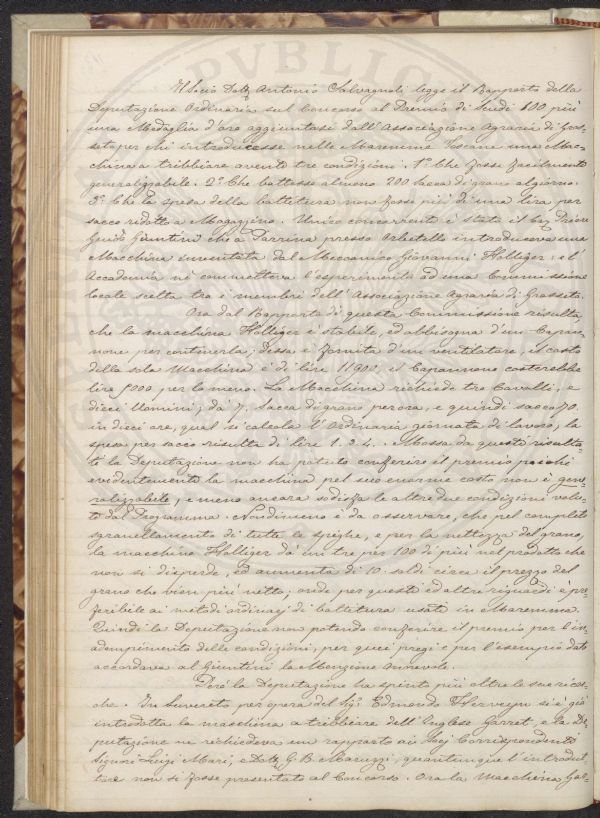 Il Socio Dott. Antonio Salvagnoli legge il Rapporto della
Deputazione Ordinaria sul Concorso al Premio di Scudi 100 più
una Medaglia d'oro aggiuntasi dall'Associazione Agraria di Gros-
seto per chi introducesse nelle Maremme Toscane una Mac-
china a tribbiare avente tre condizioni. 1.° Che fosse facilmente
generalizzabile. 2.° Che battesse almeno 200 sacca di grano al giorno.
3.° Che la spesa della battitura non fosse più di una lira per
sacco ridotto a Magazzino. Unico concorrente è stato il Cav. Priore
Guido Giuntini che a Parrina presso Orbetello introduceva una
Macchina inventata dal Meccanico Giovanni Holliger: e l'
Accademia ne commetteva l'esperimento ad una Commissione
locale scelta tra i membri dell'Associazione Agraria di Grosseto.
Ora dal Rapporto di questa Commissione resulta,
che la macchina Holliger è stabile, ed abbisogna d'un Capan-
none per contenerla; dessa è fornita d'un ventilatore, il costo
della sola Macchina è di lire 11900, il Capannone costerebbe
lire per lo meno. La Macchina richiede tre Cavalli, e
dieci Uomini; dà 7. Sacca di grano per ora, e quindi sacca 70.
in dieci ore, qual si calcola l'Ordinaria giornata di lavoro, la
spesa per sacco risulta di lire 1. 3. 4. Mossa da questi risulta-
ti la Deputazione non ha potuto conferire il premio poichè
evidentemente la macchina pel suo enorme costo non è gene-
ralizzabile, e meno ancora sodisfa le altre due condizioni volu-
te dal Programma. Nondimeno è da osservare, che pel completo
sgranellamento di tutte le spighe, e per la nettezza del grano,
la macchina Holliger dà un tre per 100 di più nel prodotto che
non si disperde, ed aumenta di 10. soldi circa il prezzo del
grano che vien più netto; onde per questi ed altri riguardi è pre-
feribile ai metodi ordinarj di battitura usati in Maremma.
Quindi la Deputazione non potendo conferire il premio per l'in-
adempimento delle condizioni, per quei pregi e per l'esempio dato
accordava al Giuntini la Menzione Onorevole.
Però la Deputazione ha spinto più oltre le sue ricer-
che. In Suvereto per opera del Sig. Edmondo si è già
introdotta la macchina a tribbiare dell'Inglese Garret, e la De-
putazione ne richiedeva un rapporto ai Socj Corrispondenti
Signori Luigi Mari, e Dott. G. B. Maruzzi, quantunque l'introdut-
tore non si fosse presentato al Concorso. Ora la Macchina Gar-